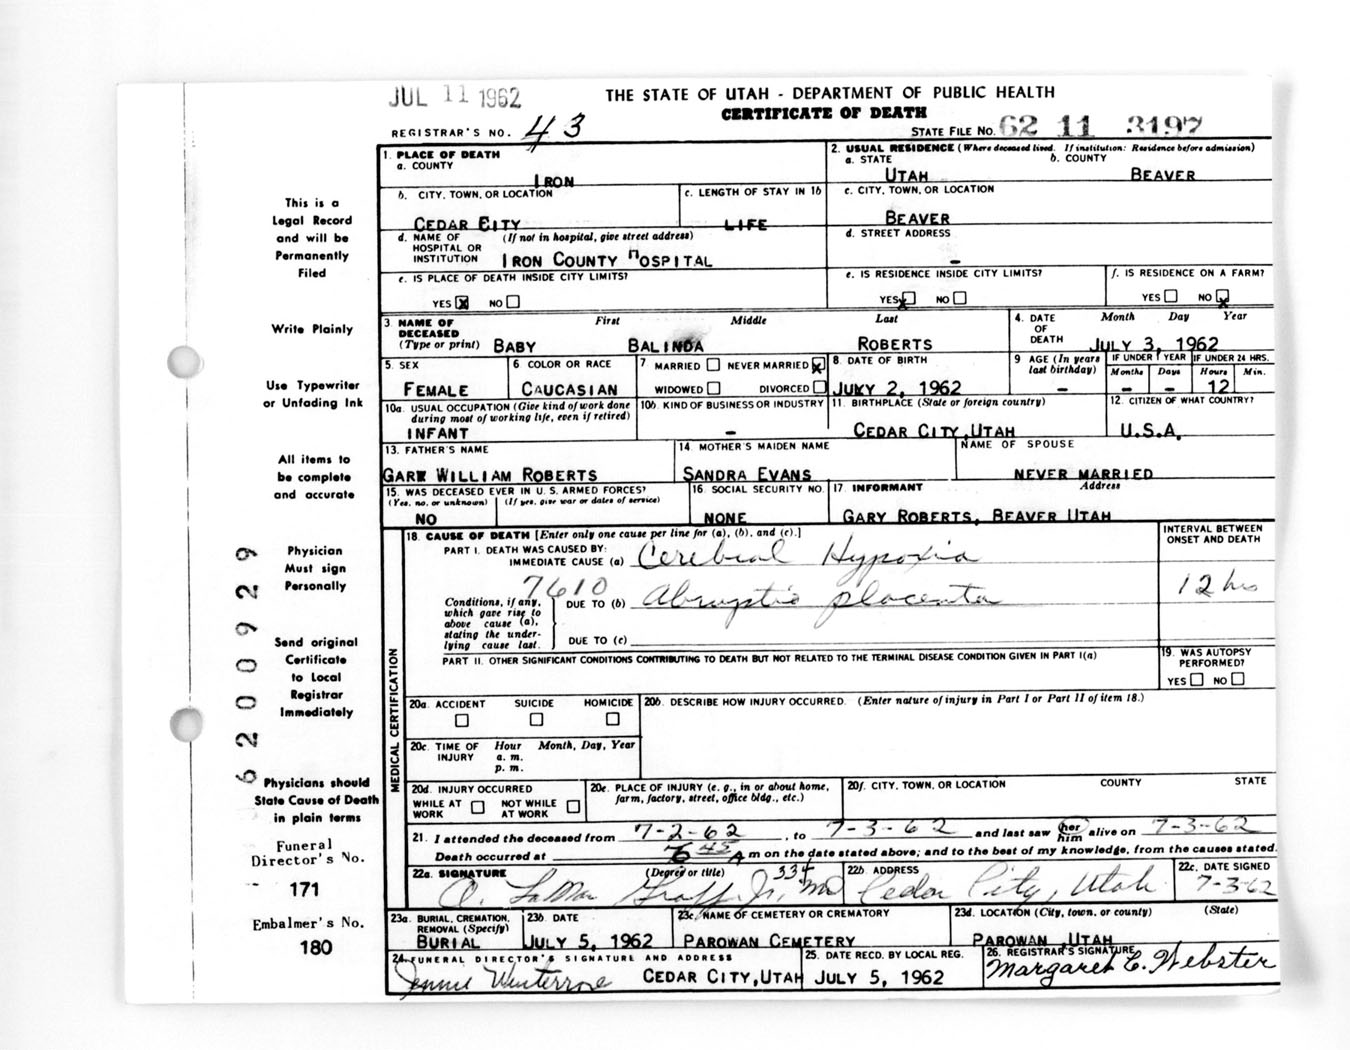 JUL 11 1962
THE STATE OF UTAH - DEPARTMENT OF PUBLIC HEALTH
CERTIFICATE OF DEATH
REGISTRAR'S NO. 43
STATE FILE NO. 62 11 3197
1. PLACE OF DEATH
a. COUNTY
IRON
2. USUAL RESIDENCE (Where deceased lived. If institution: Residence before admission)
a. STATE b. COUNTY
UTAH BEAVER
b. CITY, TOWN, OR LOCATION
CEDAR CITY
c. LENGTH OF STAY IN 1b
LIFE
c. CITY, TOWN, OR LOCATION
BEAVER
d. NAME OF HOSPITAL OR INSTITUTION (If not in hospital, give street address)
IRON COUNTY HOSPITAL
d. STREET ADDRESS
-
e. IS PLACE OF DEATH INSIDE CITY LIMITS?
YES X NO
e. IS RESIDENCE INSIDE CITY LIMITS?
YES X NO
f. IS RESIDENCE ON A FARM?
YES NO X
3. NAME OF DECEASED (Type or print)
First Middle Last
BABY BALINDA ROBERTS
4. DATE OF DEATH
Month Day Year
JULY 3, 1962
5. SEX
FEMALE
6 COLOR OR RACE
CAUCASIAN
7 MARRIED NEVER MARRIED X
WIDOWED DIVORCED
8. DATE OF BIRTH
JUKY 2, 1962
9 AGE (In years last birthday)
-
IF UNDER 1 YEAR IF UNDER 24 HRS.
Months Days Hours Min.
- - 12
10a. USUAL OCCUPATION (Give kind of work done during most of working life, even if retired)
INFANT
10b. KIND OF BUSINESS OR INDUSTRY
-
11. BIRTHPLACE (State or foreign country)
CEDAR CITY, UTAH
12. CITIZEN OF WHAT COUNTRY?
U.S.A.
13. FATHER'S NAME
GARY WILLIAM ROBERTS
14. MOTHER'S MAIDEN NAME
SANDRA EVANS
NAME OF SPOUSE
NEVER MARRIED
15. WAS DECEASED EVER IN U.S. ARMED FORCES?
(Yes, no, or unknown) (If yes, give war or dates of service)
NO
16. SOCIAL SECURITY NO.
NONE
17. INFORMANT Address
GARY ROBERTS, BEAVER UTAH
18. CAUSE OF DEATH [Enter only one cause per line for (a), (b), and (c).]
INTERVAL BETWEEN ONSET AND DEATH
PART I. DEATH WAS CAUSED BY:
IMMEDIATE CAUSE (a) Cerebral Hypoxia
7610
Conditions, if any, which gave rise to above cause (a), stating the underlying cause last.
DUE TO (b) Abruptio placenta
12 hrs
DUE TO (c)
PART II. OTHER SIGNIFICANT CONDITIONS CONTRIBUTING TO DEATH BUT NOT RELATED TO THE TERMINAL DISEASE CONDITION GIVEN IN PART I(a)
19. WAS AUTOPSY PERFORMED?
YES NO
MEDICAL CERTIFICATION
20a. ACCIDENT SUICIDE HOMICIDE
20b. DESCRIBE HOW INJURY OCCURRED. (Enter nature of injury in Part I or Part II of item 18.)
20c. TIME OF INJURY
Hour Month, Day, Year
a. m.
p. m.
20d. INJURY OCCURRED
WHILE AT WORK NOT WHILE AT WORK
20e. PLACE OF INJURY (e. g., in or about home, farm, factory, street, office bldg., etc.)
20f. CITY, TOWN, OR LOCATION COUNTY STATE
21. I attended the deceased from 7-2-62, to 7-3-62 and last saw her him alive on 7-3-62
Death occurred at 6 45 A m on the date stated above; and to the best of my knowledge, from the causes stated.
22a. SIGNATURE (Degree or title)
334
O. LaMar Graff Jr. MD
22b. ADDRESS
Cedar City, Utah
22c. DATE SIGNED
7-3-62
23a. BURIAL, CREMATION, REMOVAL (Specify)
BURIAL
23b. DATE
JULY 5, 1962
23c. NAME OF CEMETERY OR CREMATORY
PAROWAN CEMETERY
23d. LOCATION (City, town, or county) (State)
PAROWAN, UTAH
24. FUNERAL DIRECTOR'S SIGNATURE AND ADDRESS
Jennie Winterrose CEDAR CITY, UTAH
25. DATE RECD. BY LOCAL REG.
JULY 5, 1962
26. REGISTRAR'S SIGNATURE
Margaret E. Webster
This is a
Legal Record
and will be
Permanently
Filed
Write Plainly
Use Typewriter
or Unfading Ink
All items to
be complete
and accurate
Physician
Must sign
Personally
Send original
Certificate
to Local
Registrar
Immediately
Physicians should
State Cause of Death
in plain terms
Funeral
Director's No.
171
Embalmer's No.
180
62009929